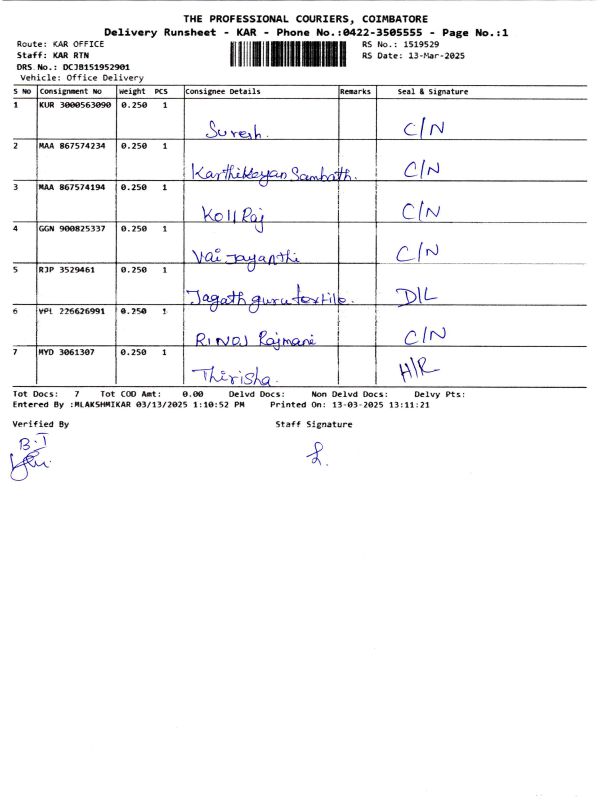 THE PROFESSIONAL COURIERS, COIMBATORE
Delivery Runsheet - KAR - Phone No.:0422-3505555 - Page No.:1
Route: KAR OFFICE RS No.: 1519529
Staff: KAR RTN RS Date: 13-Mar-2025
DRS No.: DCJB151952901
Vehicle: Office Delivery
S No Consignment No Weight PCS Consignee Details Remarks Seal & Signature
1 KUR 3000563090 0.250 1
Suresh. C/N
2 MAA 867574234 0.250 1
Karthikeyan Sambath. C/N
3 MAA 867574194 0.250 1
Koll Raj C/N
4 GGN 900825337 0.250 1
Vai Jayanthi C/N
5 RJP 3529461 0.250 1
Jagath guru textile. D/L
6 VPL 226626991 0.250 1
Rajmani C/N
7 MYD 3061307 0.250 1
Thirisha. H/R
Tot Docs: 7 Tot COD Amt: 0.00 Delvd Docs: Non Delvd Docs: Delvy Pts:
Entered By :MLAKSHMIKAR 03/13/2025 1:10:52 PM Printed On: 13-03-2025 13:11:21
Verified By Staff Signature
B.T